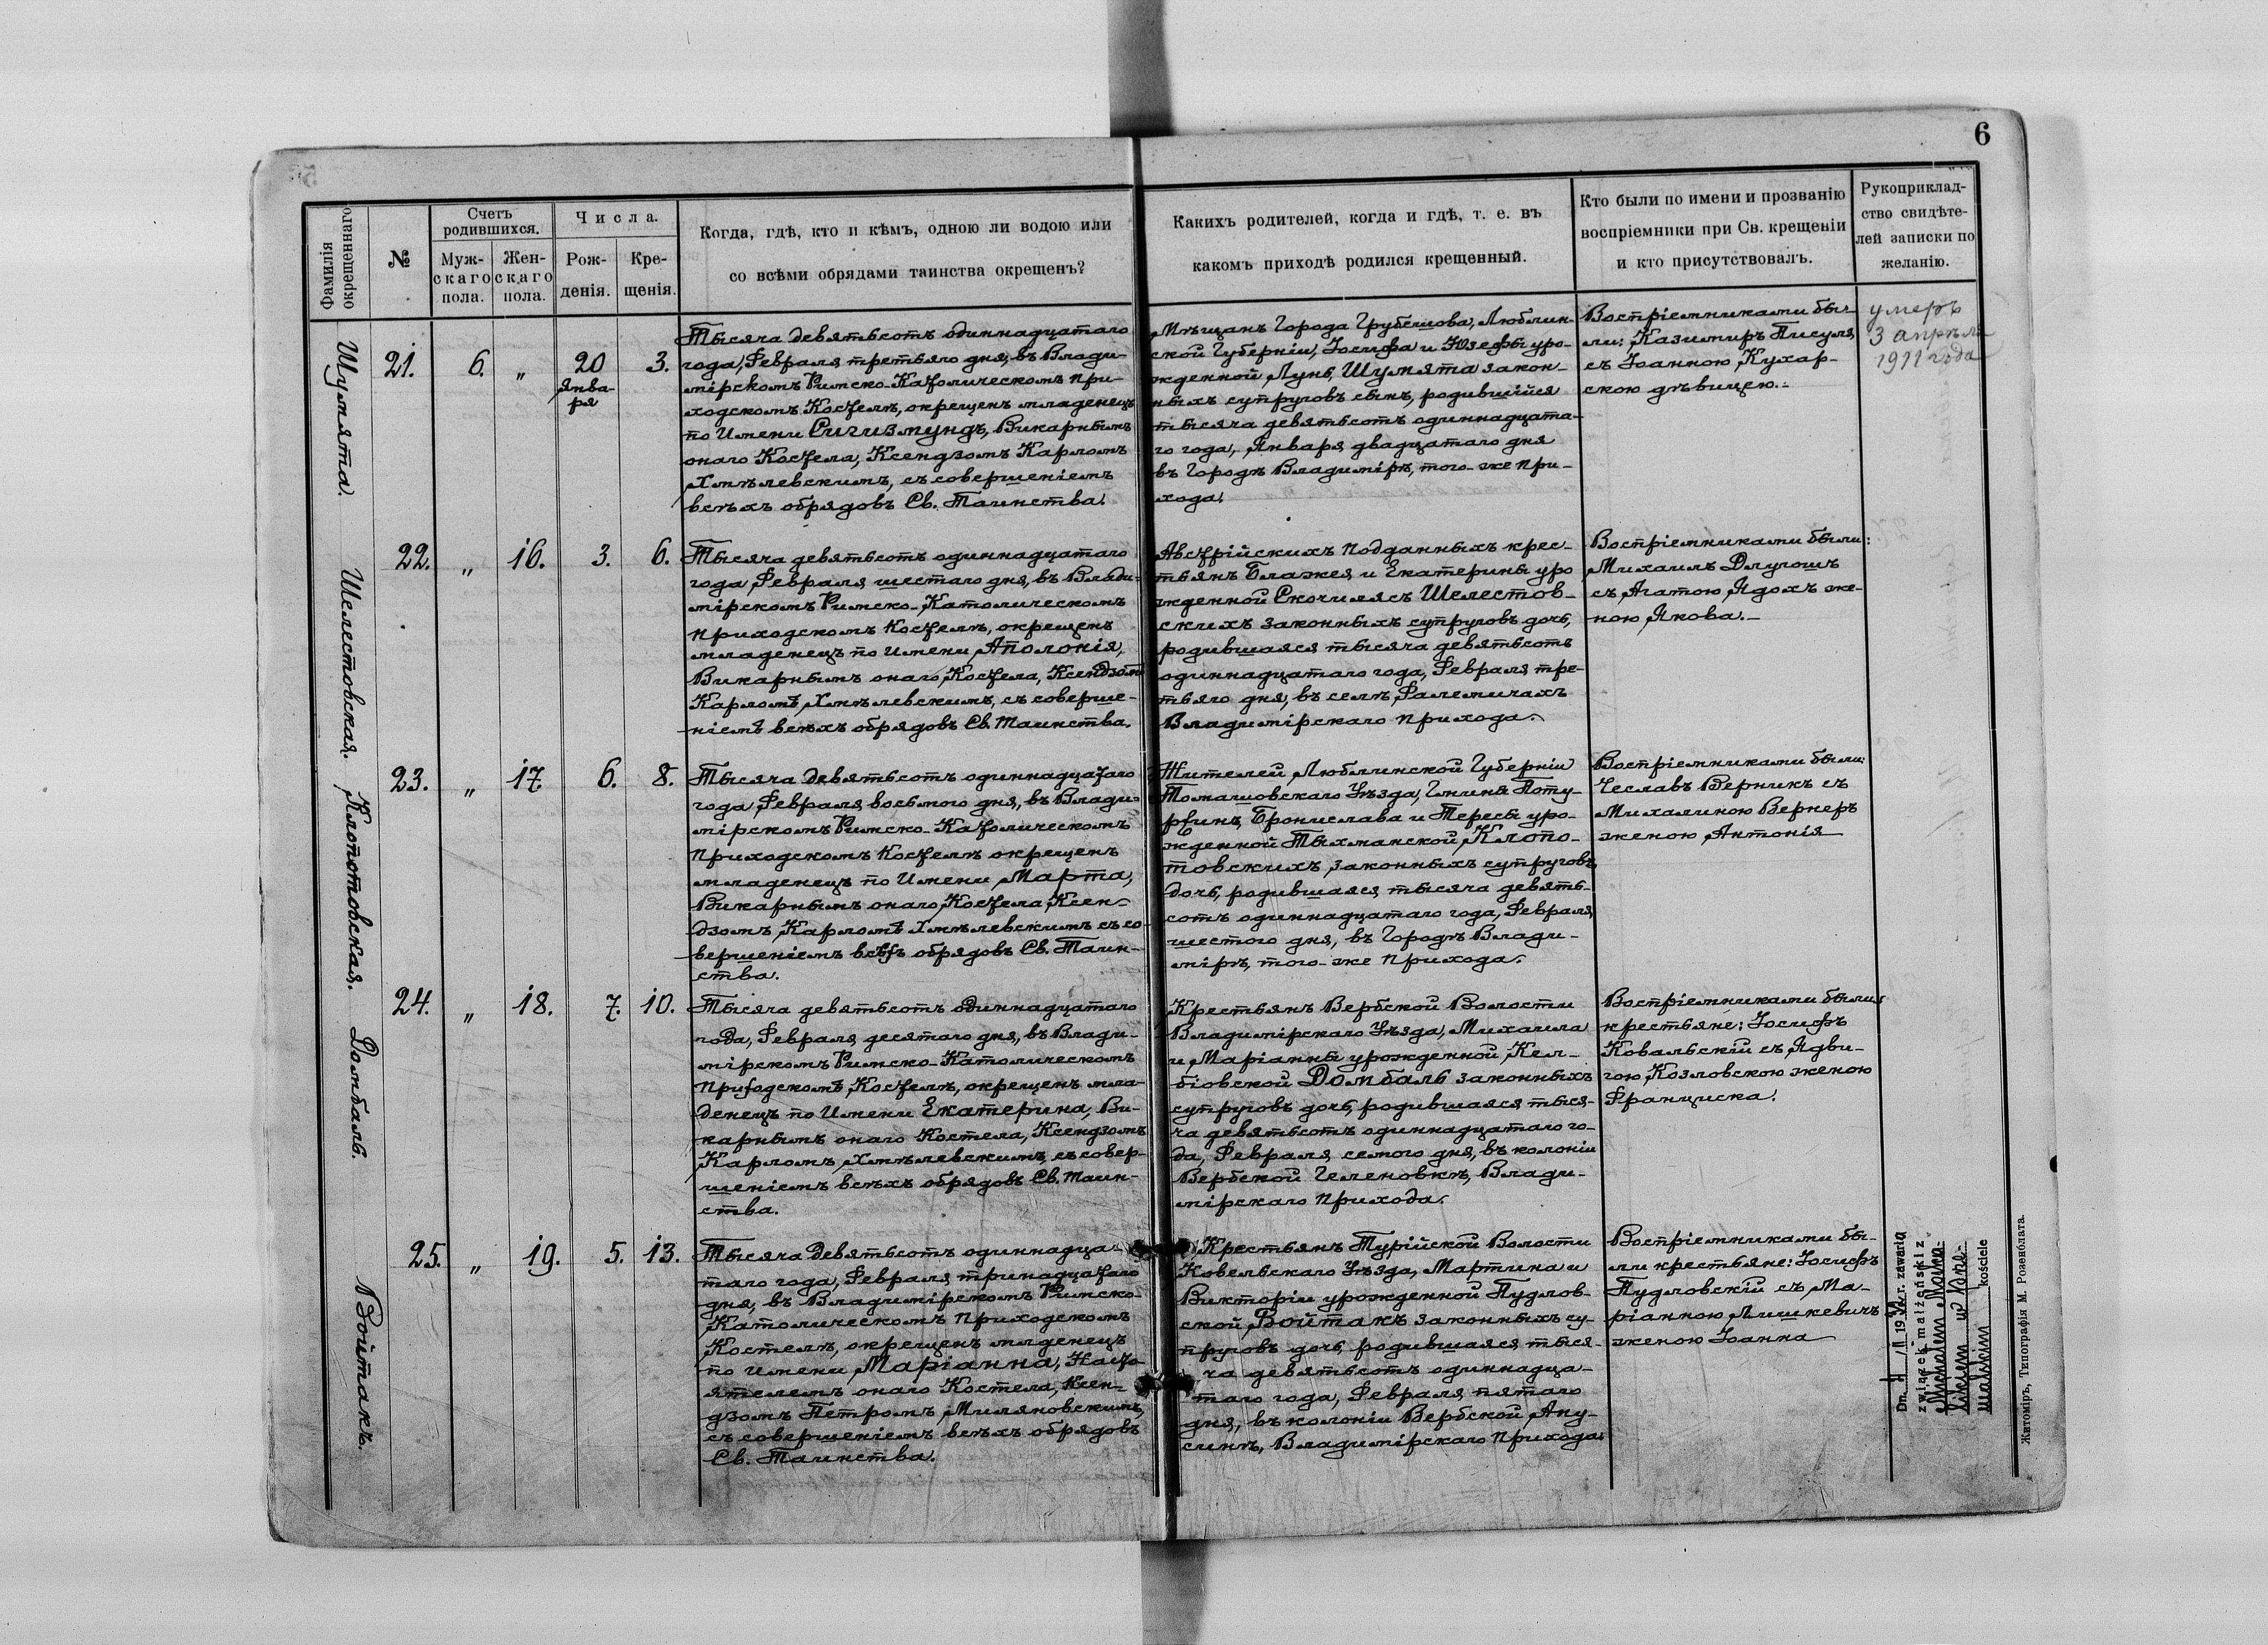 6
Фамилія
окрещеннаго
№
Счетъ
родившихся.
Муж-
скаго
пола.
Жен-
скаго
пола.
Числа.
Рож-
денія.
Кре-
щенія.
Когда, гдѣ, кто и кѣмъ, одною ли водою или
со всѣми обрядами таинства окрещенъ?
Какихъ родителей, когда и гдѣ, т. е. въ
какомъ приходѣ родился крещенный.
Кто были по имени и прозванію
воспріемники при Св. крещеніи
и кто присутствовалъ.
Рукоприклад-
ство свидѣте-
лей записки по
желанію.
Шумята.
21. 6. „ 20 Янва-
ря
3.
Тысяча девятьсотъ одиннадцатаго
года, Февраля третьяго дня, въ Влади-
мірскомъ Римско-Католическомъ При-
ходскомъ Костелѣ, окрещенъ младенецъ
по Имени Сигизмундъ, Викарнымъ
онаго Костела, Ксендзомъ Карломъ
Хмѣлевскимъ, съ совершеніемъ
всѣхъ обрядовъ Св. Таинства.
Мѣщанъ Города Грубешова, Люблин-
ской Губерніи, Іосифа и Юзефы уро-
жденной Лунь, Шумята закон-
ныхъ супруговъ сынъ, родившійся
тысяча девятьсотъ одиннадцата-
го года, Января двадцатаго дня
въ Городѣ Владимірѣ, того-же при-
хода.
Воспріемниками бы-
ли: Казимиръ Писуля,
съ Іоанною Кухар-
скою дѣвицею.-
умеръ
3 апрѣля
1911 года
Шелестовская.
22. „ 16. 3. 6.
Тысяча девятьсотъ одиннадцатаго
года, Февраля шестаго дня, въ Влади-
мірскомъ Римско-Католическомъ
Приходскомъ Костелѣ, окрещенъ
младенецъ по Имени Аполонія,
Викарнымъ онаго Костела, Ксендзомъ
Карломъ Хмѣлевскимъ, съ соверше-
ніемъ всѣхъ обрядовъ Св. Таинства.
Австрійскихъ Подданныхъ крес-
тьянъ Блажея и Екатерины уро
жденной Скочилясъ Шелестов-
скихъ законныхъ супруговъ дочь,
родившаяся тысяча девятьсотъ
одиннадцатаго года, Февраля тре-
тьяго дня, въ селѣ, Фалемичахъ
Владимірскаго Прихода.
Воспріемниками были:
Михаилъ Длугошъ
съ Агатою Ядохъ же-
ною Якова.-
Клопотовская.
23. „ 17. 6. 8.
Тысяча девятьсотъ одиннадцатаго
года, Февраля восьмого дня, въ Влади-
мірскомъ Римско-Католическомъ
Приходскомъ Костелѣ окрещенъ
младенецъ по Имени Марта,
Викарнымъ онаго Костела, Ксен-
дзомъ, Карломъ Хмѣлевскимъ съ со-
вершеніемъ всѣхъ обрядовъ Св. Таин-
ства.
Жителей Люблинской Губерніи
Томашовскаго Уѣзда, Гмины Поту-
ржинъ, Бронислава и Тересы уро-
жденной Тыхманской, Клопо-
товскихъ, законныхъ супруговъ
дочь, родившаяся, тысяча девять-
сотъ одиннадцатаго года, Февраля,
шестого дня, въ Городѣ Влади-
мірѣ, того-же Прихода.
Воспріемниками были:
Чеславъ Верникъ съ
Михалиною Вернеръ
женою Антонія
Домбаль.
24. „ 18. 7. 10.
Тысяча девятьсотъ одиннадцатаго
года, Февраля десятаго дня, въ Влади-
мірскомъ Римско-Католическомъ
Приходскомъ, Костелѣ, окрещенъ мла-
денецъ по Имени Екатерина, Ви-
карнымъ онаго Костела, Ксендзомъ
Карломъ Хмѣлевскимъ, съ совер-
шеніемъ всѣхъ обрядовъ Св. Таин-
ства.
Крестьянъ Вербской Волости
Владимірскаго Уѣзда, Михаила
и Маріанны урожденной, Кел-
біовской Домбаль законныхъ
супруговъ дочь, родившаяся тыся-
ча девятьсотъ одиннадцатаго го-
да, Февраля, семого дня, въ колоніи
Вербской Геленовкѣ, Влади-
мірскаго Прихода.
Воспріемниками были:
крестьяне: Іосифъ
Ковальскій съ Ядви-
гою Козловскою женою
Франциска.
Войтакъ.
25. „ 19. 5. 13.
Тысяча девятьсотъ одиннадца-
таго года, Февраля тринадцатаго
дня, въ Владимірскомъ Римско-
Католическомъ Приходскомъ
Костелѣ, окрещенъ младенецъ
по Имени Маріанна, Насто-
ятелемъ онаго Костела, Ксен-
дзомъ Петромъ Миляновскимъ,
съ совершеніемъ всѣхъ обрядовъ
Св. Таинства.
Крестьянъ Турійской Волости
Ковельскаго Уѣзда, Мартина и
Викторіи урожденной Пудлов-
ской, Войтакъ законныхъ су-
пруговъ дочь, родившаяся тыся-
ча девятьсотъ одиннадца-
таго года, Февраля пятаго
дня, въ колоніи Вербской Ану-
синѣ, Владимірскаго Прихода.
Воспріемниками бы-
ли крестьяне: Іосифъ
Пудловскій съ Ма-
ріанною Лишкевичъ
женою Іоанна
Dn. 19 r. zawarła
związek małżeński z
kościele
Житоміръ, Типографія М. Розенблата.